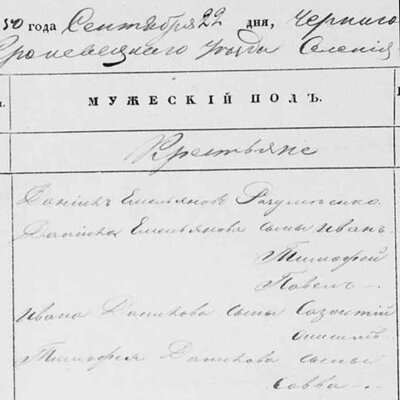 50 года Сентября 22 дня, Черниго
Кролевецкаго уѣзда Селенія
МУЖЕСКІЙ ПОЛЪ.
Крестьяне
Данілъ Емельяновъ Разуменко
Данійла Емельянова сыны Иванъ
Тимофей
Павелъ
Ивана Данилова сыны Созонтій
Онисимъ
Тимофея Данилова сыны
Савва